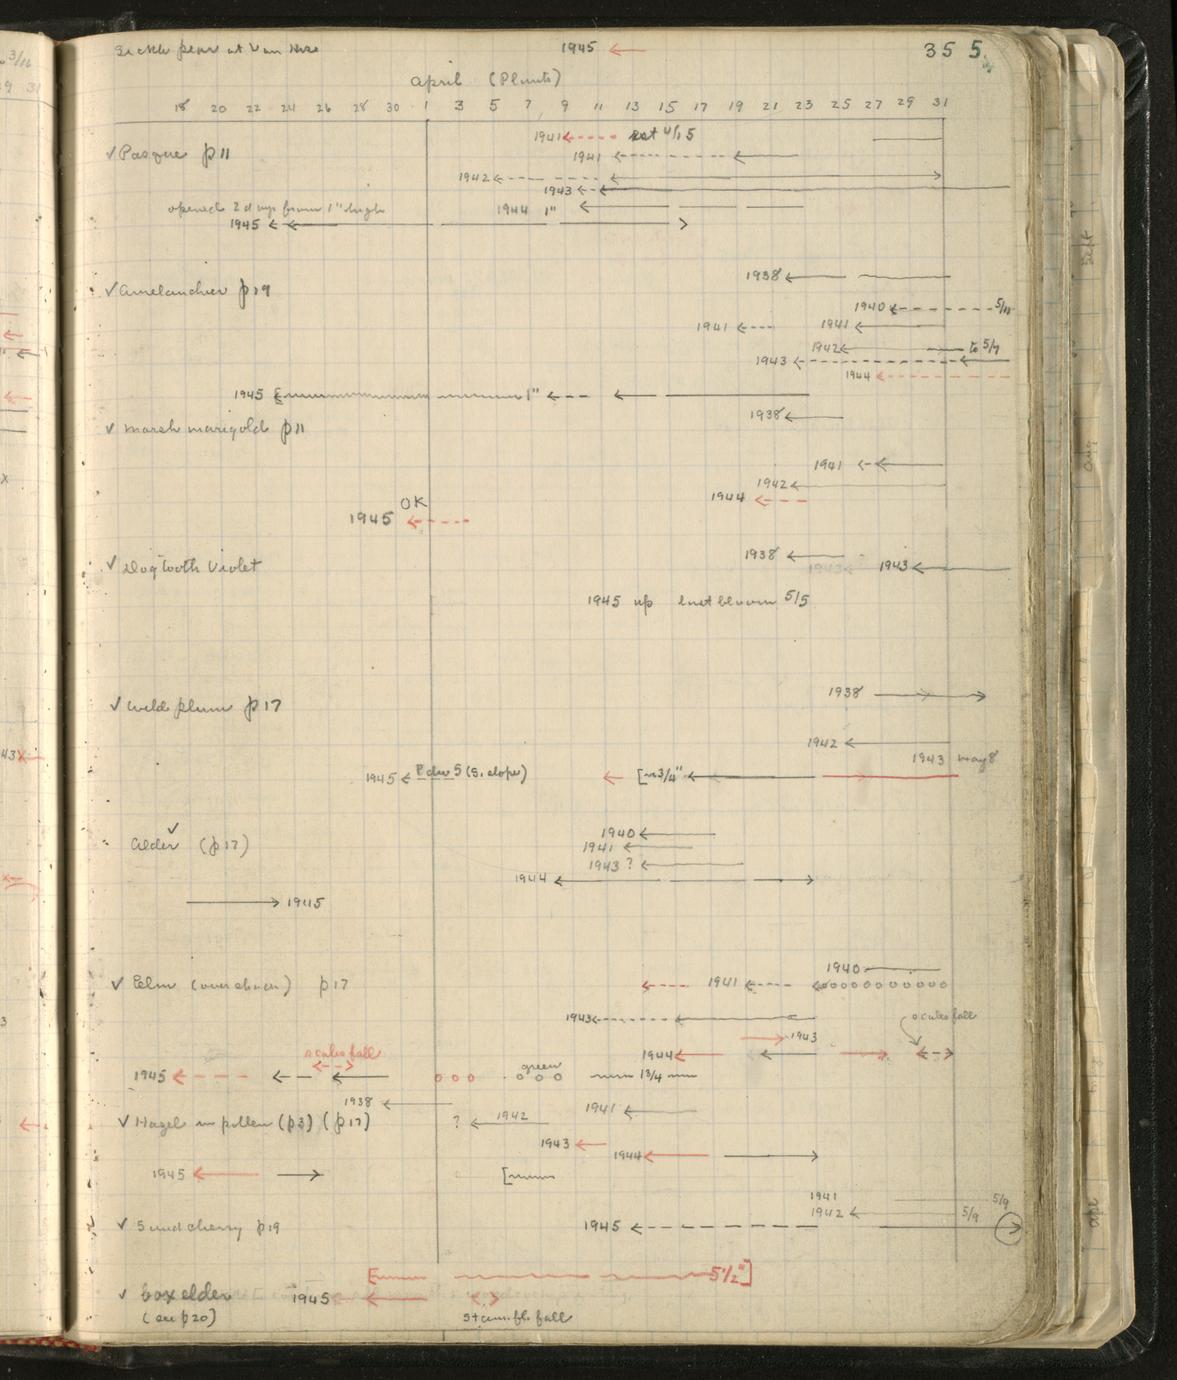 Sickle pear at Van Hise 1945 35 5
April (Plants)
18 20 22 24 26 28 30 1 3 5 7 9 11 13 15 17 19 21 23 25 27 29 31
1941 est 4/15
✓ Pasque p 11 1941
1942
1943
opened 2 days from 1" high 1944 1"
1945
1938
✓ Amelanchier p 19
1940 5/11
1941 1941
1942 to 5/7
1943
1944
1945 1"
1938
✓ Marsh marigold p 11
1941
1942
1944
OK
1945
1938
✓ Dogtooth Violet 1943 1943
1945 up last bloom 5/5
1938
✓ Wild plum p 17
1942
1943 May 8
1945 (S. slope) 3/4"
1940
✓ Alder (p 17) 1941
1943 ?
1944
1945
1940
✓ Elm (over door) p 17 1941
1943 scales fall
1943
scales fall 1944
green
1945 1 3/4
1938 1941
✓ Hazel in pollen (p3) (p 17) ? 1942
1943
1944
1945
1941 5/9
1942 5/9
✓ Sand cherry p 19 1945
5 1/2"
✓ box elder 1945
(see p 20) stam. fls. fall
Sept
Aug
Apr